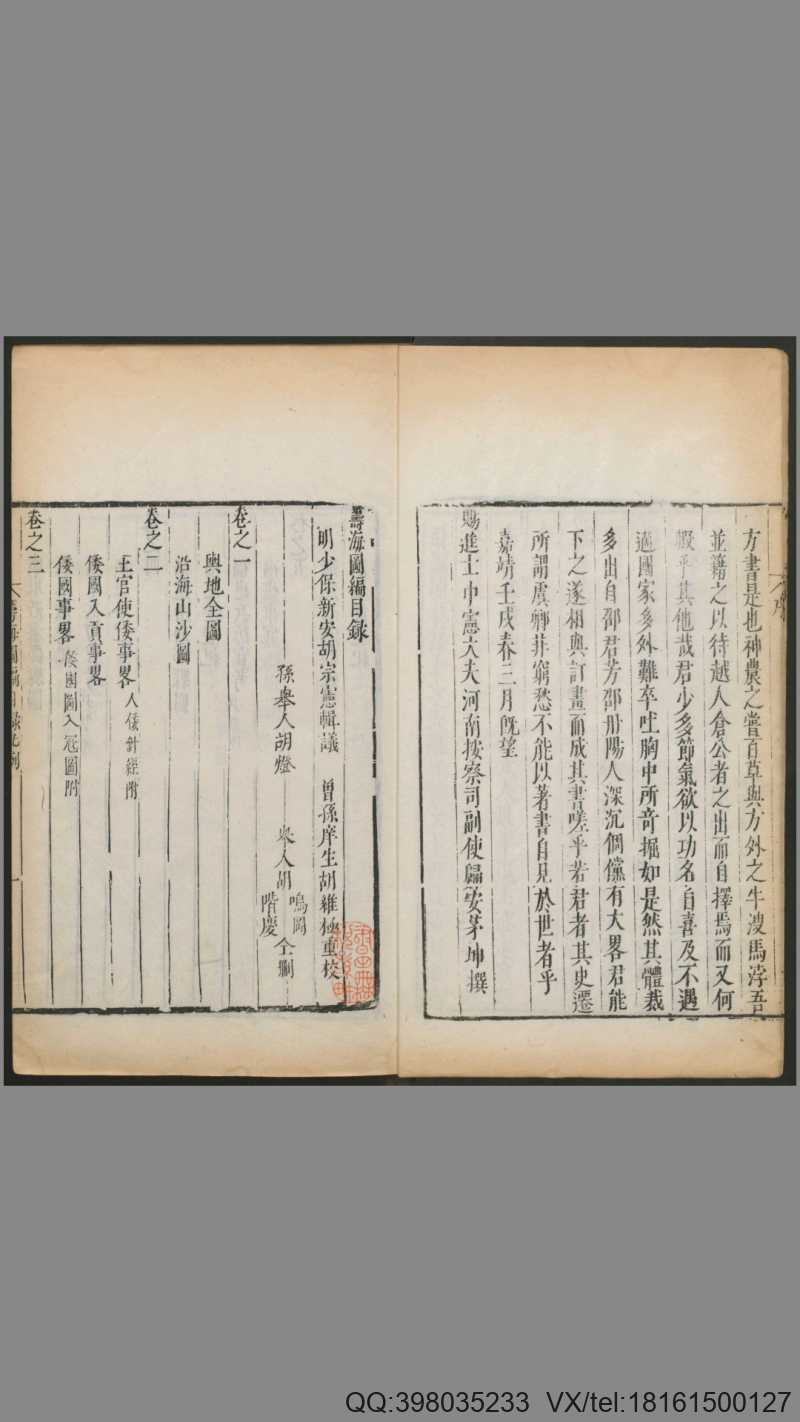 方書是也神農之嘗百草與方外之牛溲馬浡吾
並籍之以待越人倉公者之出而自擇焉而又何
假乎其他哉君少多節氣欲以功名自喜及不遇
適國家多外難卒吐胸中所奇掘如是然其體裁
多出自邵君芳邵丹陽人深沉倜儻有大畧君能
下之遂相與訂畫而成其書嗟乎若君者其史遷
所謂虞卿非窮愁不能以著書自見於世者乎
嘉靖壬戌春三月既望
賜進士中憲大夫河南按察司副使歸安茅坤撰
籌海圖編目録
明少保新安胡宗憲輯議 曾孫庠生胡維極重校
孫舉人胡燈 舉人胡鳴岡 階慶 仝删
卷之一
輿地全圖
沿海山沙圖
卷之二
王官使倭事畧 入倭針經附
倭國入貢事畧
倭國事畧 倭國圖入寇圖附
卷之三
QQ:398035233 VX/tel:18161500127